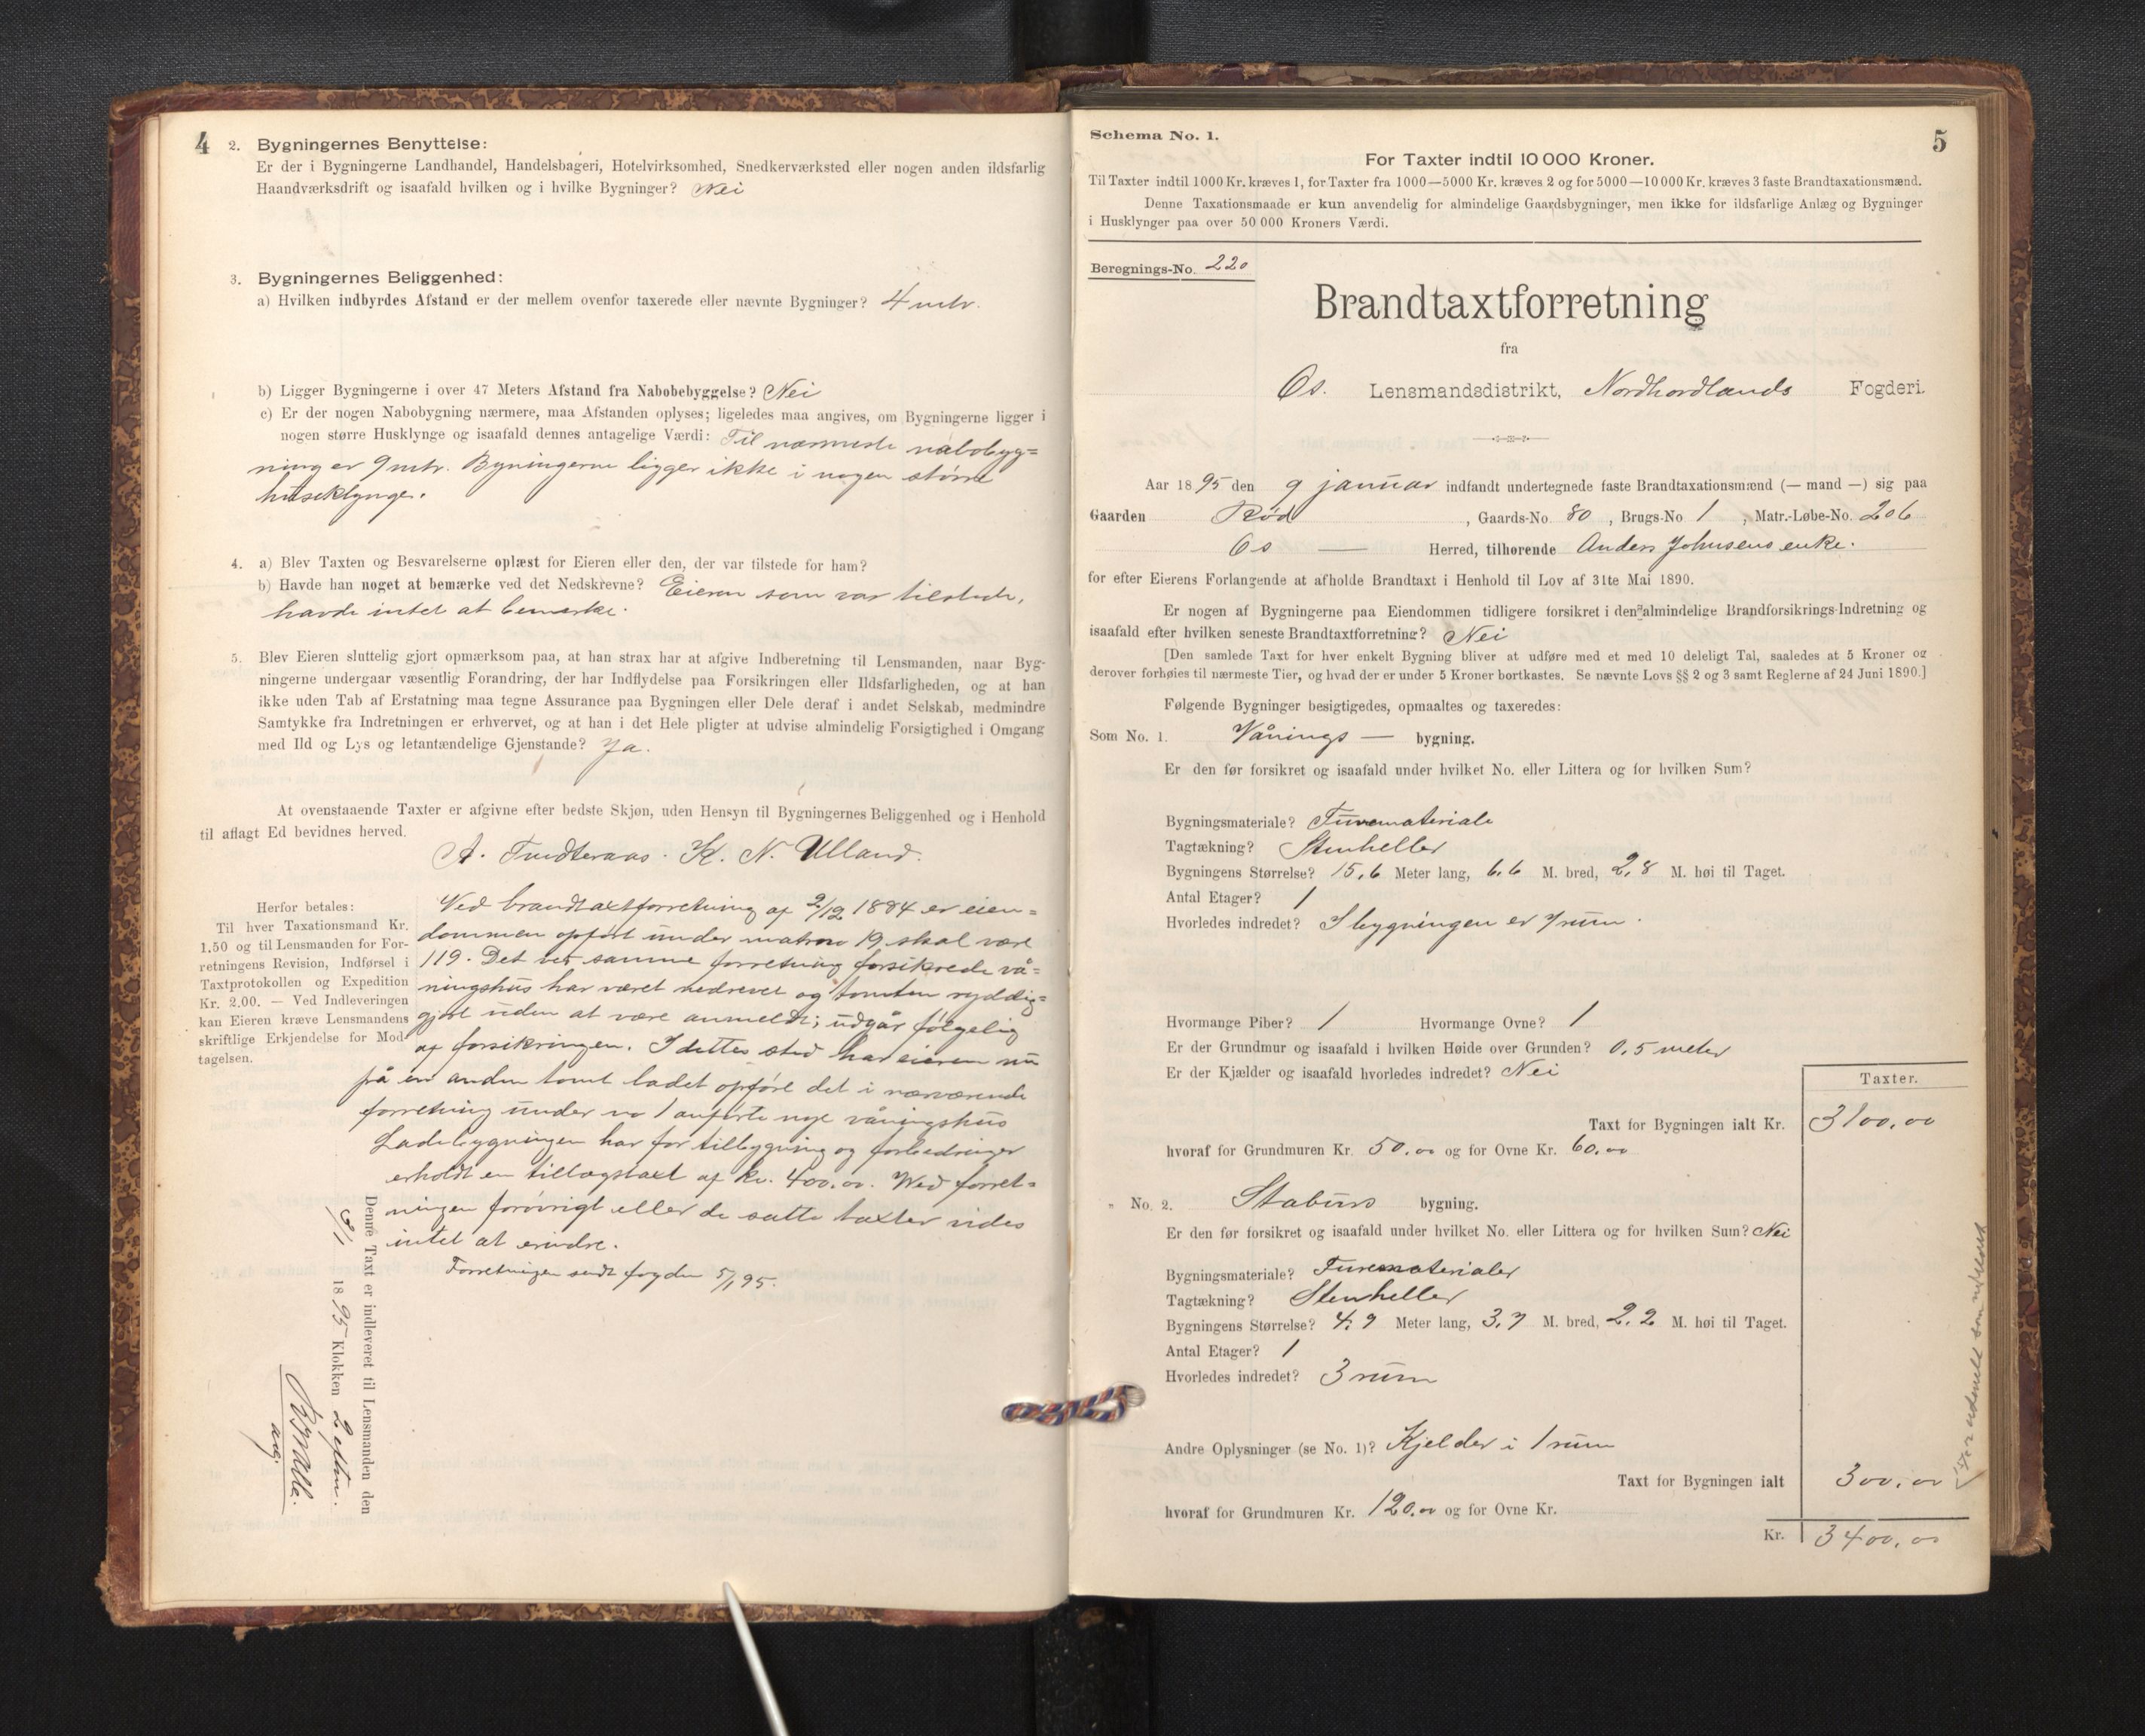 4
2. Bygningernes Benyttelse:
Er der i Bygningerne Landhandel, Handelsbageri, Hotelvirksomhed, Snedkerværksted eller nogen anden ildsfarlig
Haandværksdrift og isaafald hvilken og i hvilke Bygninger? Nei
3. Bygningernes Beliggenhed:
a) Hvilken indbyrdes Afstand er der mellem ovenfor taxerede eller nævnte Bygninger? 4 mtr.
b) Ligger Bygningerne i over 47 Meters Afstand fra Nabobebyggelse? Nei
c) Er der nogen Nabobygning nærmere, maa Afstanden oplyses; ligeledes maa angives, om Bygningerne ligger i
nogen større Husklynge og isaafald dennes antagelige Værdi: Til nærmeste nabobyg=
ning er 9 mtr. Bygningerne ligger ikke i nogen større
huseklynge.
4. a) Blev Taxten og Besvarelserne oplæst for Eieren eller den, der var tilstede for ham?
b) Havde han noget at bemærke ved det Nedskrevne? Eieren som var tilstede,
havde intet at bemærke.
5. Blev Eieren sluttelig gjort opmærksom paa, at han strax har at afgive Indberetning til Lensmanden, naar Byg-
ningerne undergaar væsentlig Forandring, der har Indflydelse paa Forsikringen eller Ildsfarligheden, og at han
ikke uden Tab af Erstatning maa tegne Assurance paa Bygningen eller Dele deraf i andet Selskab, medmindre
Samtykke fra Indretningen er erhvervet, og at han i det Hele pligter at udvise almindelig Forsigtighed i Omgang
med Ild og Lys og letantændelige Gjenstande? Ja.
At ovenstaaende Taxter er afgivne efter bedste Skjøn, uden Hensyn til Bygningernes Beliggenhed og i Henhold
til aflagt Ed bevidnes herved.
A. Tundteraas. K. N. Ulland.
Herfor betales:
Til hver Taxationsmand Kr.
1.50 og til Lensmanden for For-
retningens Revision, Indførsel i
Taxtprotokollen og Expedition
Kr. 2.00. — Ved Indleveringen
kan Eieren kræve Lensmandens
skriftlige Erkjendelse for Mod-
tagelsen.
Ved brandtaxtforretning af 2/12 1884 er eien=
dommen opført under matr no 19, skal være
119. Det ved samme forretning forsikrede vå=
ningshus har været nedrevet og tomten ryddig=
gjort uden at være anmeldt; udgår følgelig
af forsikringen. I dettes sted har eieren nu
på en anden tomt ladet opføre det i nærværende
forretning under no 1 anførte nye våningshus
Ladebygningen har for tilbygning og forbedringer
erholdt en tillægstaxt af kr. 400,00. Ved forret=
ningen forøvrigt eller de satte taxter vides
intet at erindre.
Forretningen sendt fogden 5/1 95.
Denne Taxt er indleveret til Lensmanden den
3/1 1895 Klokken 2 efterm.
5
Schema No. 1.
For Taxter indtil 10 000 Kroner.
Til Taxter indtil 1000 Kr. kræves 1, for Taxter fra 1000—5000 Kr. kræves 2 og for 5000—10 000 Kr. kræves 3 faste Brandtaxationsmænd.
Denne Taxationsmaade er kun anvendelig for almindelige Gaardsbygninger, men ikke for ildsfarlige Anlæg og Bygninger
i Husklynger paa over 50 000 Kroners Værdi.
Beregnings-No. 220
Brandtaxtforretning
fra
Os. Lensmandsdistrikt, Nordhordlands Fogderi.
Aar 1895 den 9 januar indfandt undertegnede faste Brandtaxationsmænd (— mand —) sig paa
Gaarden Rød, Gaards-No. 80, Brugs-No 1, Matr.-Løbe-No. 206
Os — Herred, tilhørende Anders Johnsens enke.
for efter Eierens Forlangende at afholde Brandtaxt i Henhold til Lov af 31te Mai 1890.
Er nogen af Bygningerne paa Eiendommen tidligere forsikret i den almindelige Brandforsikrings-Indretning og
isaafald efter hvilken seneste Brandtaxtforretning? Nei
[Den samlede Taxt for hver enkelt Bygning bliver at udføre med et med 10 deleligt Tal, saaledes at 5 Kroner og
derover forhøies til nærmeste Tier, og hvad der er under 5 Kroner bortkastes. Se nævnte Lovs §§ 2 og 3 samt Reglerne af 24 Juni 1890.]
Følgende Bygninger besigtigedes, opmaaltes og taxeredes:
Som No. 1. Vånings — bygning.
Er den før forsikret og isaafald under hvilket No. eller Littera og for hvilken Sum?
Bygningsmateriale? Furumateriale
Tagtækning? Stenheller
Bygningens Størrelse? 15,6 Meter lang, 6,6 M. bred, 2,8 M. høi til Taget.
Antal Etager? 1
Hvorledes indredet? I bygningen er 7 rum.
Hvormange Piber? 1 Hvormange Ovne? 1
Er der Grundmur og isaafald i hvilken Høide over Grunden? 0,5 meter
Er der Kjælder og isaafald hvorledes indredet? Nei
Taxter.
Taxt for Bygningen ialt Kr. 3100,00
hvoraf for Grundmuren Kr. 50,00 og for Ovne Kr. 60,00
" No. 2. Staburs bygning.
Er den før forsikret og isaafald under hvilket No. eller Littera og for hvilken Sum? Nei
Bygningsmateriale? Furumaterialer
Tagtækning? Stenheller
Bygningens Størrelse? 4,9 Meter lang, 3,7 M. bred, 2,2 M. høi til Taget.
Antal Etager? 1
Hvorledes indredet? 3 rum
Andre Oplysninger (se No. 1)? Kjelder i 1 rum
Taxt for Bygningen ialt 300,00
hvoraf for Grundmuren Kr. 120,00 og for Ovne Kr.
Kr. 3400,00